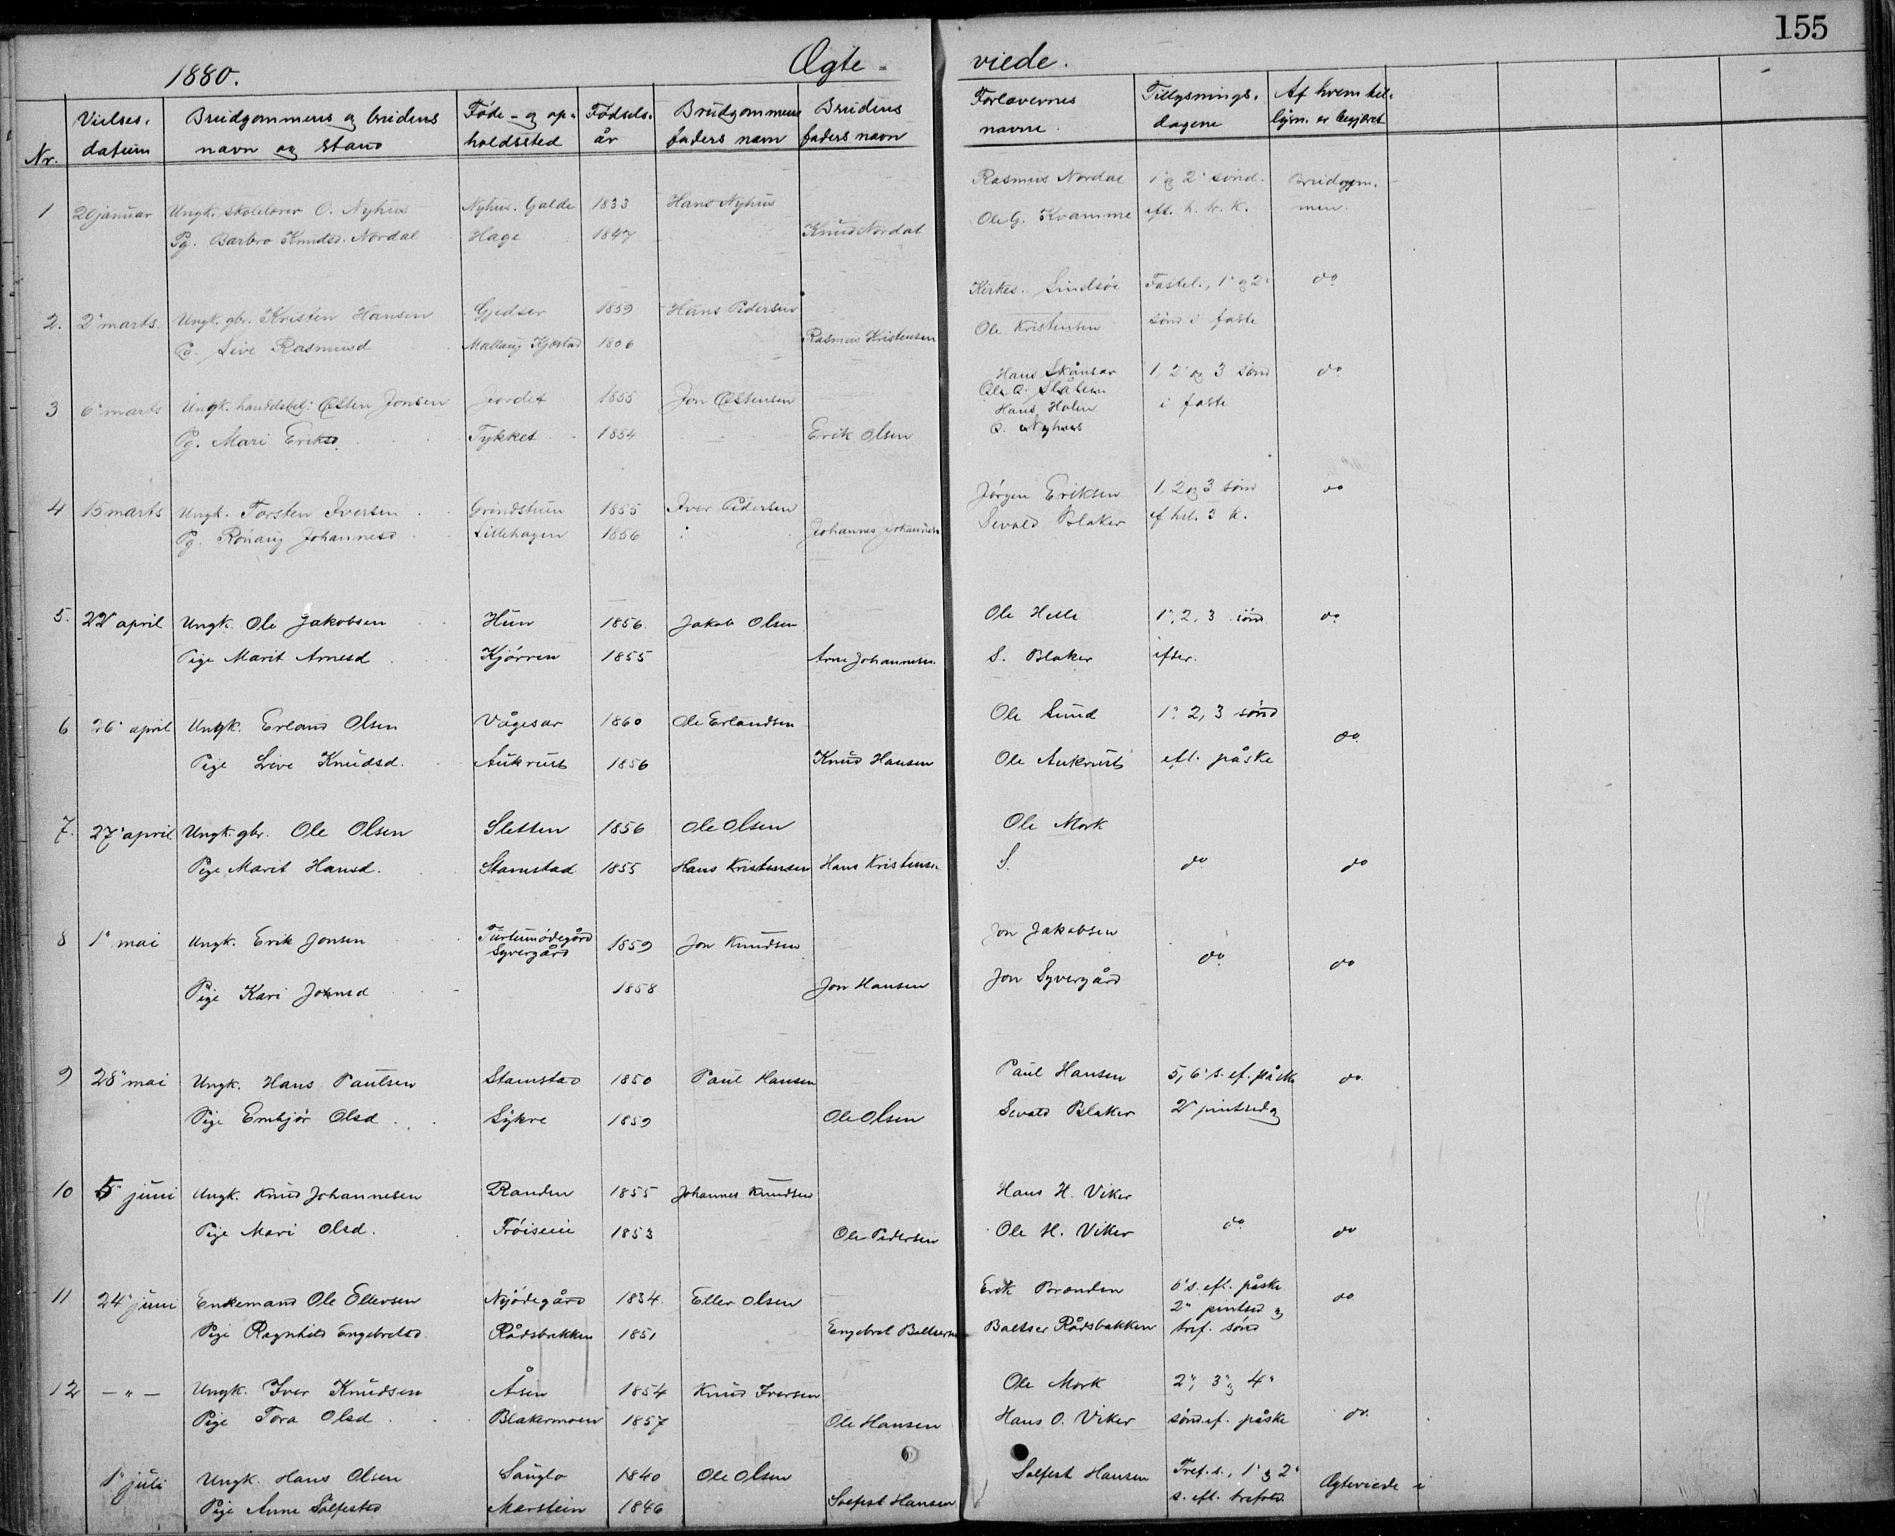 155
1880. Ægte - viede.
Nr. Vielses. datum Brudgommens og brudens navn og stand Føde - og op. holdssted Fødsels. år Brudgommens faders navn Brudens faders navn Forlovernes navne. Tillysnings. dagene Af hvem til. lysn. er begjæret
1 20 januar Ungk. skolelærer O. Nyhus Nyhus. Galde 1833 Hans Nyhus Rasmus Nordal 1' og 2' sønd. Brudgom.
Pg. Barbro Knudsd. Nordal Hage 1847 Knud Nordal Ole G. Kvamme eft. h. tr. k. men.
2. 2' marts. Ungk. gbr. Kristen Hansen Gjedser 1859 Hans Pedersen Kirkes. Lindsøe Fastel., 1' og 2' do
Pg. Live Rasmusd Mallaug Kjæstad 1806 Rasmus Kristensen Ole Kristensen sønd i faste
3 6' marts Ungk. handelsbetj. Østen Jonsen Jordet 1855 Jon Østensen Hans Skånsar 1, 2' og 3 sønd do
Ole O. Slåheim
Pg. Mari Eriksd. Tykket 1854 Erik Olsen Hans Holen i faste
O. Nyhus
4 15 marts Ungk. Torsten Iversen Grindstuen 1855 Iver Pedersen Jørgen Eriksen 1, 2 og 3 sønd do
Pg. Rønaug Johannesd Lillehagen 1856 Johannes Johannesen Sevald Blaker ef. hel. 3 k.
5. 22' april Ungk. Ole Jakobsen Hun 1856. Jakob Olsen Ole Helle 1', 2, 3 sønd do
Pige Marit Arnesd Kjørren 1855 Arne Johannesen. S. Blaker efter.
6 26' april Ungk. Erland Olsen Vågesar 1860 Ole Erlandsen Ole Lund 1', 2, 3 sønd do.
Pige Live Knudsd. Aukrust 1856 Knud Hansen Ole Aukrust eft. påske
7. 27' april Ungk. gbr. Ole Olsen Sletten 1856 Ole Olsen Ole Mork
Pige Marit Hansd. Stamstad 1855 Hans Kristensen Hans Kristensen S. do do
8 1' mai Ungk. Erik Jonsen Turtumødegård Syvergård 1859 Jon Knudsen Jon Jakobsen do. do
Pige Kari Jonsd 1858 Jon Hansen Jon Syvergård
9 28' mai Ungk. Hans Paulsen Stamstad 1850 Paul Hansen Paul Hansen 5, 6' s. ef. påske do.
Pige Embjør Olsd Sykre 1859 Ole Olsen Sevald Blaker 2' pintsedg
10 5' juni Ungk. Knud Johannesen Randen 1855 Johannes Knudsen Hans H. Viker
Pige Mari Olsd. Frøiseie 1853 Ole Pedersen Ole H. Viker do do
11 24' juni Enkemand Ole Ellersen Nyødegård 1834. Eller Olsen Erik Branden 6' s. eft. påske 2' pintsed og do
Pige Ragnhild Engebretsd. Rådsbakken 1851 Engebret Baltsersen Baltser Rådsbakken tref. sønd
12 — " — Ungk. Iver Knudsen Åsen 1854 Knud Iversen Ole Mork 2', 3' og 4'
Pige Tora Olsd Blakermoen 1857 Ole Hansen Hans O. Viker sønd. ef. påske do.
1' juli Ungk. Hans Olsen Sauglo 1840 Ole Olsen Solfest Hansen Tref. s., 1' og 2' Ægteviede i
Pige Anne Solfestsd Marstein 1846 Solfest Hansen s. eft. trefold.